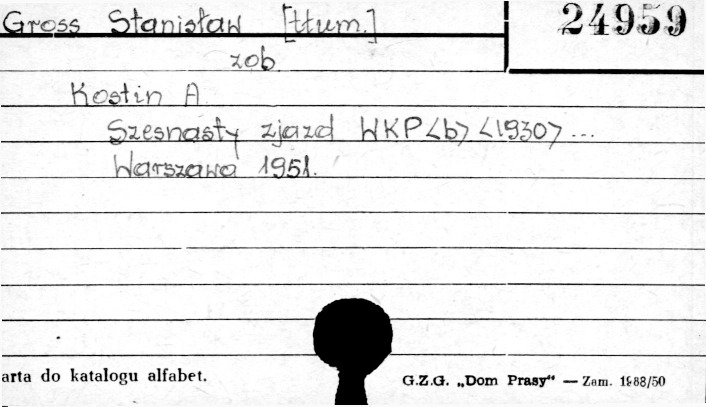 Gross Stanisław [tłum.] 24959
zob.
Kostin A
Szesnasty zjazd WKP<b> <1930> ...
Warszawa 1951.
arta do katalogu alfabet. G.Z.G. „Dom Prasy“ — Zam. 1988/50